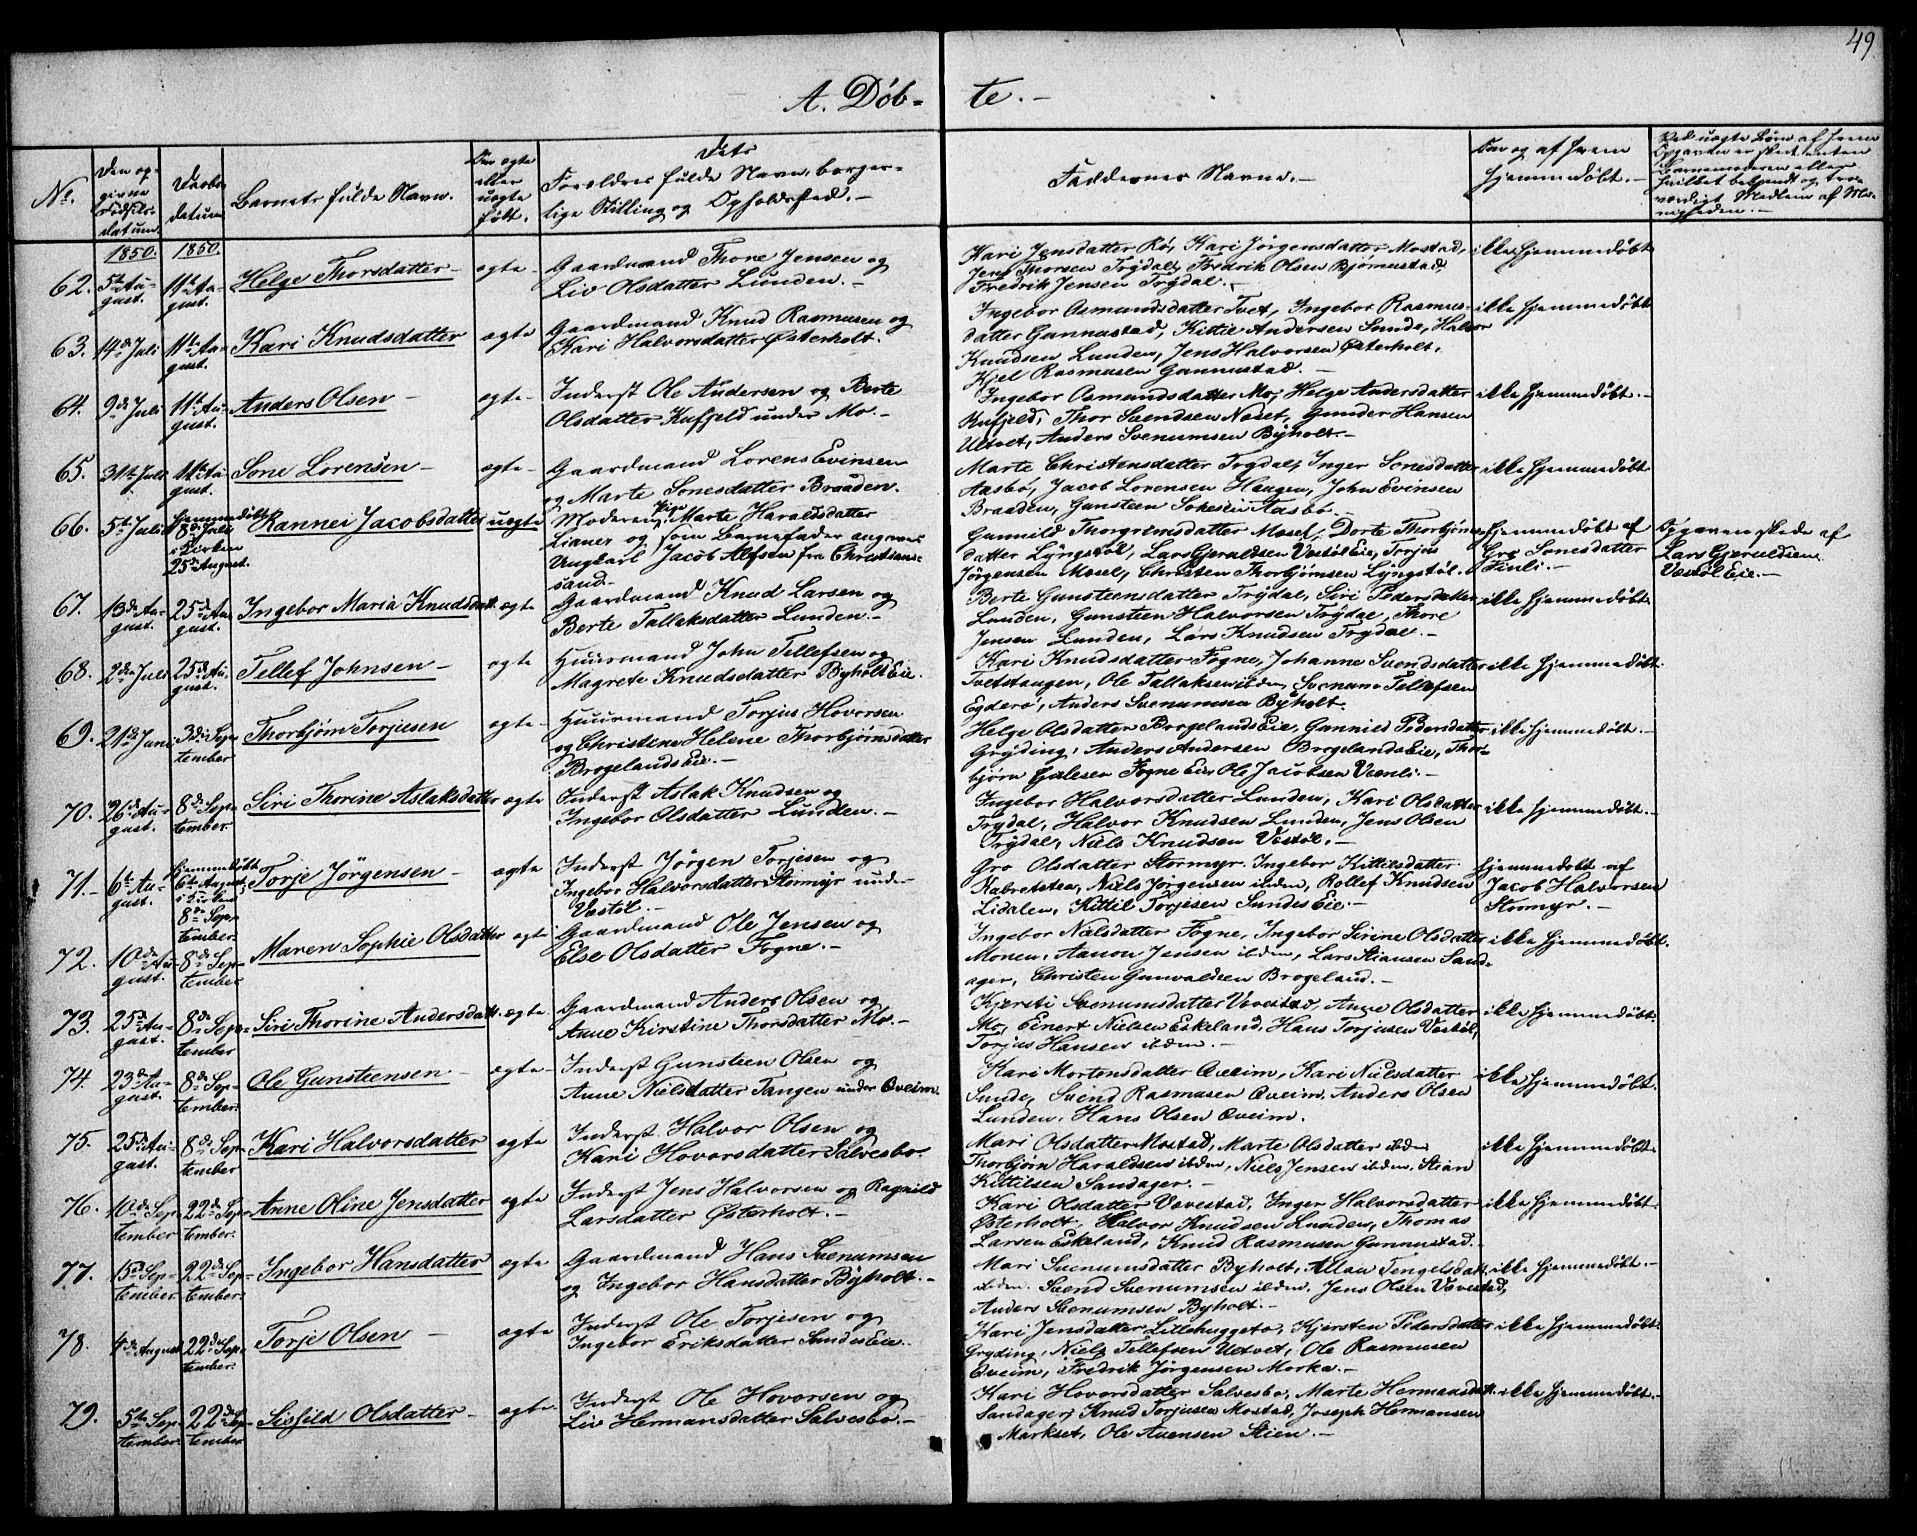 49
A. Döb-te.-
No.
Den opgivne Fødselsdatum.
Daabsdatum
Barnets fulde Navn.
Om ægte eller uægte født.
Dets Forældres fulde Navn, borgerlige Stilling og Opholdssted.-
Faddernes Navne.-
Om og af hvem hjemmedøbt.-
Ved uægte Børn af hvem Opgaven er skeet, enten Barnemoderen eller hvilket bekjendt og troværdigt Medlem af Menigheden.-
1850. 1850.
62. 5te August. 11te August. Helge Thorsdatter- ægte- Gaardmand Thore Jensen og
Liv Olsdatter Lunden.-
Kari Jensdatter Rö, Kari Jörgensdatter Mostad, ikke hjemmedøbt
Jens Thorsen Trydal, Fredrik Olsen Bjørnustad,
Fredrik Jensen Trydal.-
63. 14de Juli 11te August. Kari Knudsdatter ægte Gaardmand Knud Rasmusen og
Kari Halvorsdatter Østerholt.
Ingebor Osmundsdatter Tvet, Ingebor Rasmus- ikke hjemmedøbt
datter Gannustad, Kittil Andersen Sunde, Halvor
Knudsen Lunden, Jens Halvorsen Østerholt,
Kjel Rasmusen Gannustad.-
64. 9de Juli 11te August. Anders Olsen- ægte- Inderst Ole Andersen og Berte
Olsdatter Kufjeld under Mo.-
Ingebor Osmundsdatter Mo, Helge Andersdatter ikke hjemmedøbt.-
Kufjeld, Thor Svendsen Næset, Gunder Hansen
Ultvet, Anders Svenumsen Byholt.-
65. 31te Juli 11te August. Sone Lorensen- ægte- Gaardmand Lorens Evinsen
og Marte Sonesdatter Braaden.
Marte Christensdatter Trydal, Inger Sonesdatter ikke hjemmedøbt
Aasbö, Jacob Lorensen Haugen, John Evinsen
Braaden, Gunsteen Aasbö.-
66. 5te Juli hjemmedøbt 8de Juli i Kirken 25de August. Rannei Jacobsdatter uægte Moderen Pige Marte Haraldsdatter
Lianer og som Barnefader angives
Ungkarl Jacob Alfsen fra Christian-
sand.-
Gunnild Thorgrimsdatter Mosel, Dorte Thorbjørns- hjemmedøbt af Opgaven skede af
datter Lyngstöl, Lars Gjeruldsen Vestöl Eie, Torjus Gro Sonesdatter Lars Gjeruldsen
Jörgensen Mosel, Christen Thorbjørnsen Lyngstöl. Finli.- Vestöl Eie.-
67. 13de August. 25de August. Ingebor Maria Knudsdatt. ægte Gaardmand Knud Larsen og
Berte Tallaksdatter Lunden.-
Berte Gunsteensdatter Trydal, Siri Pedersdatter ikke hjemmedøbt
Lunden, Gunsteen Halvorsen Trydal, Thore
Jensen Lunden, Lars Knudsen Trydal.-
68. 2de Juli 25de August. Tellef Johnsen- ægte Huusmand John Tellefsen og
Magrete Knudsdatter Byholt Eie.
Kari Knudsdatter Fogne, Johanne Svendsdatter ikke hjemmedøbt.
Tvetstangen, Ole Tallaksen ibdm, Svenum Tellefsen
Egderö, Anders Svenumsen Byholt.
69. 21de Juni 3die September Thorbjørn Torjesen ægte- Huusmand Torjus Hovorsen
og Christine Helene Thorbjørnsdatter
Brogelands Eie.-
Helge Olsdatter Brogelands Eie, Gunnild Pedersdatter ikke hjemmedøbt.-
Gryding, Anders Andersen Brogelands Eie, Thor-
bjørn Fogne Eie, Ole Jacobsen Veenli.-
70. 26de August. 8de September. Siri Thorine Aslaksdatter ægte Inderst Aslak Knudsen og
Ingebor Olsdatter Lunden.-
Ingebor Halvorsdatter Lunden, Kari Olsdatter ikke hjemmedøbt.-
Trydal, Halvor Knudsen Lunden, Jens Olsen
Trydal, Niels Knudsen Vestöl.-
71.- 6te August. hjemmedøbt 6te August, i Kirken 8de September. Torje Jörgensen- ægte Inderst Jörgen Torjesen og
Ingebor Halvorsdatter Stormyr under
Vestöl.-
Gro Olsdatter Stormyr, Ingebor Kittilsdatter hjemmedøbt af
Niels Jörgensen ibdm, Rollef Knudsen Jacob Halvorsen
Lidalen, Kittil Torjesen Sundes Eie.- Stormyr.-
72. 10de August. 8de September Maren Sophie Olsdatter ægte Gaardmand Ole Jensen og
Else Olsdatter Fogne.-
Ingebor Nielsdatter Fogne, Ingebor Sirine Olsdatter ikke hjemmedøbt.
Monen, Aanon Jensen ibdm, Lars Stiansen Sand-
ager, Christen Gunvaldsen Brogeland.-
73. 25de August. 8de September Siri Thorine Andersdatt. ægte. Gaardmand Anders Olsen og
Anne Kirstine Thorsdatter Mo.-
Kjersti Svenumsdatter Vevestad, Anne Olsdatter ikke hjemmedøbt.
Mo, Einert Nielsen Eskeland, Hans Torjusen Vestöl,
Torjus Hansen ibdm.-
74. 23de August. 8de September. Ole Gunstensen- ægte- Inderst Gunsteen Olsen og
Anne Nielsdatter Tangen under Qveim.
Kari Mortensdatter Qveim, Kari Nielsdatter ikke hjemmedøbt.
Sunde, Svend Rasmusen Qveim, Anders Olsen
Lunden, Hans Olsen Qveim.
75. 25de August. 8de September Kari Halvorsdatter ægte Inderst Halvor Olsen og
Kari Hovorsdatter Salvesbo.
Mari Olsdatter Mostad, Marte Olsdatter ibdm ikke hjemmedøbt.
Thorbjørn Haraldsen ibdm, Niels Jensen ibdm, Stian
Kittilsen Sandager.-
76. 10de September 22de September. Anne Oline Jensdatter ægte Inderst Jens Halvorsen og Ragnild
Larsdatter Østerholt.-
Kari Olsdatter Vevestad, Inger Halvorsdatter ikke hjemmedøbt.
Østerholt, Halvor Knudsen Lunden, Thomas
Larsen Eskeland, Knud Rasmusen Gunnustad.
77. 15de September 22de September. Ingebor Hansdatter ægte Gaardmand Hans Svenumsen
og Ingebor Hansdatter Byholt.-
Mari Svenumsdatter Byholt, Tengelsdatt. ikke hjemmedøbt.-
ibdm. Svend Svenumsen ibdm, Jens Olsen Vevestad,
Anders Svenumsen Byholt.-
78. 4de August 22de September. Torje Olsen- ægte Inderst Ole Torjesen og
Ingebor Eriksdatter Sundes Eie.
Kari Jensdatter Lillehuggeto, Kjersten Pedersdatter ikke hjemmedøbt.
Gryding, Niels Tellefsen Ultvet, Ole Rasmusen
Qveim, Fredrik Jørgensen Morka.-
79. 5te September 22de September Sisfild Olsdatter- ægte- Inderst Ole Hovorsen og
Liv Hermansdatter Salvesbo.-
Kari Hovorsdatter Salvesbo, Marte Hermansdatt. ikke hjemmedøbt.-
Sandager, Knud Torjusen Mostad, Joseph Hermansen
Markset, Ole Avensen Stien.-